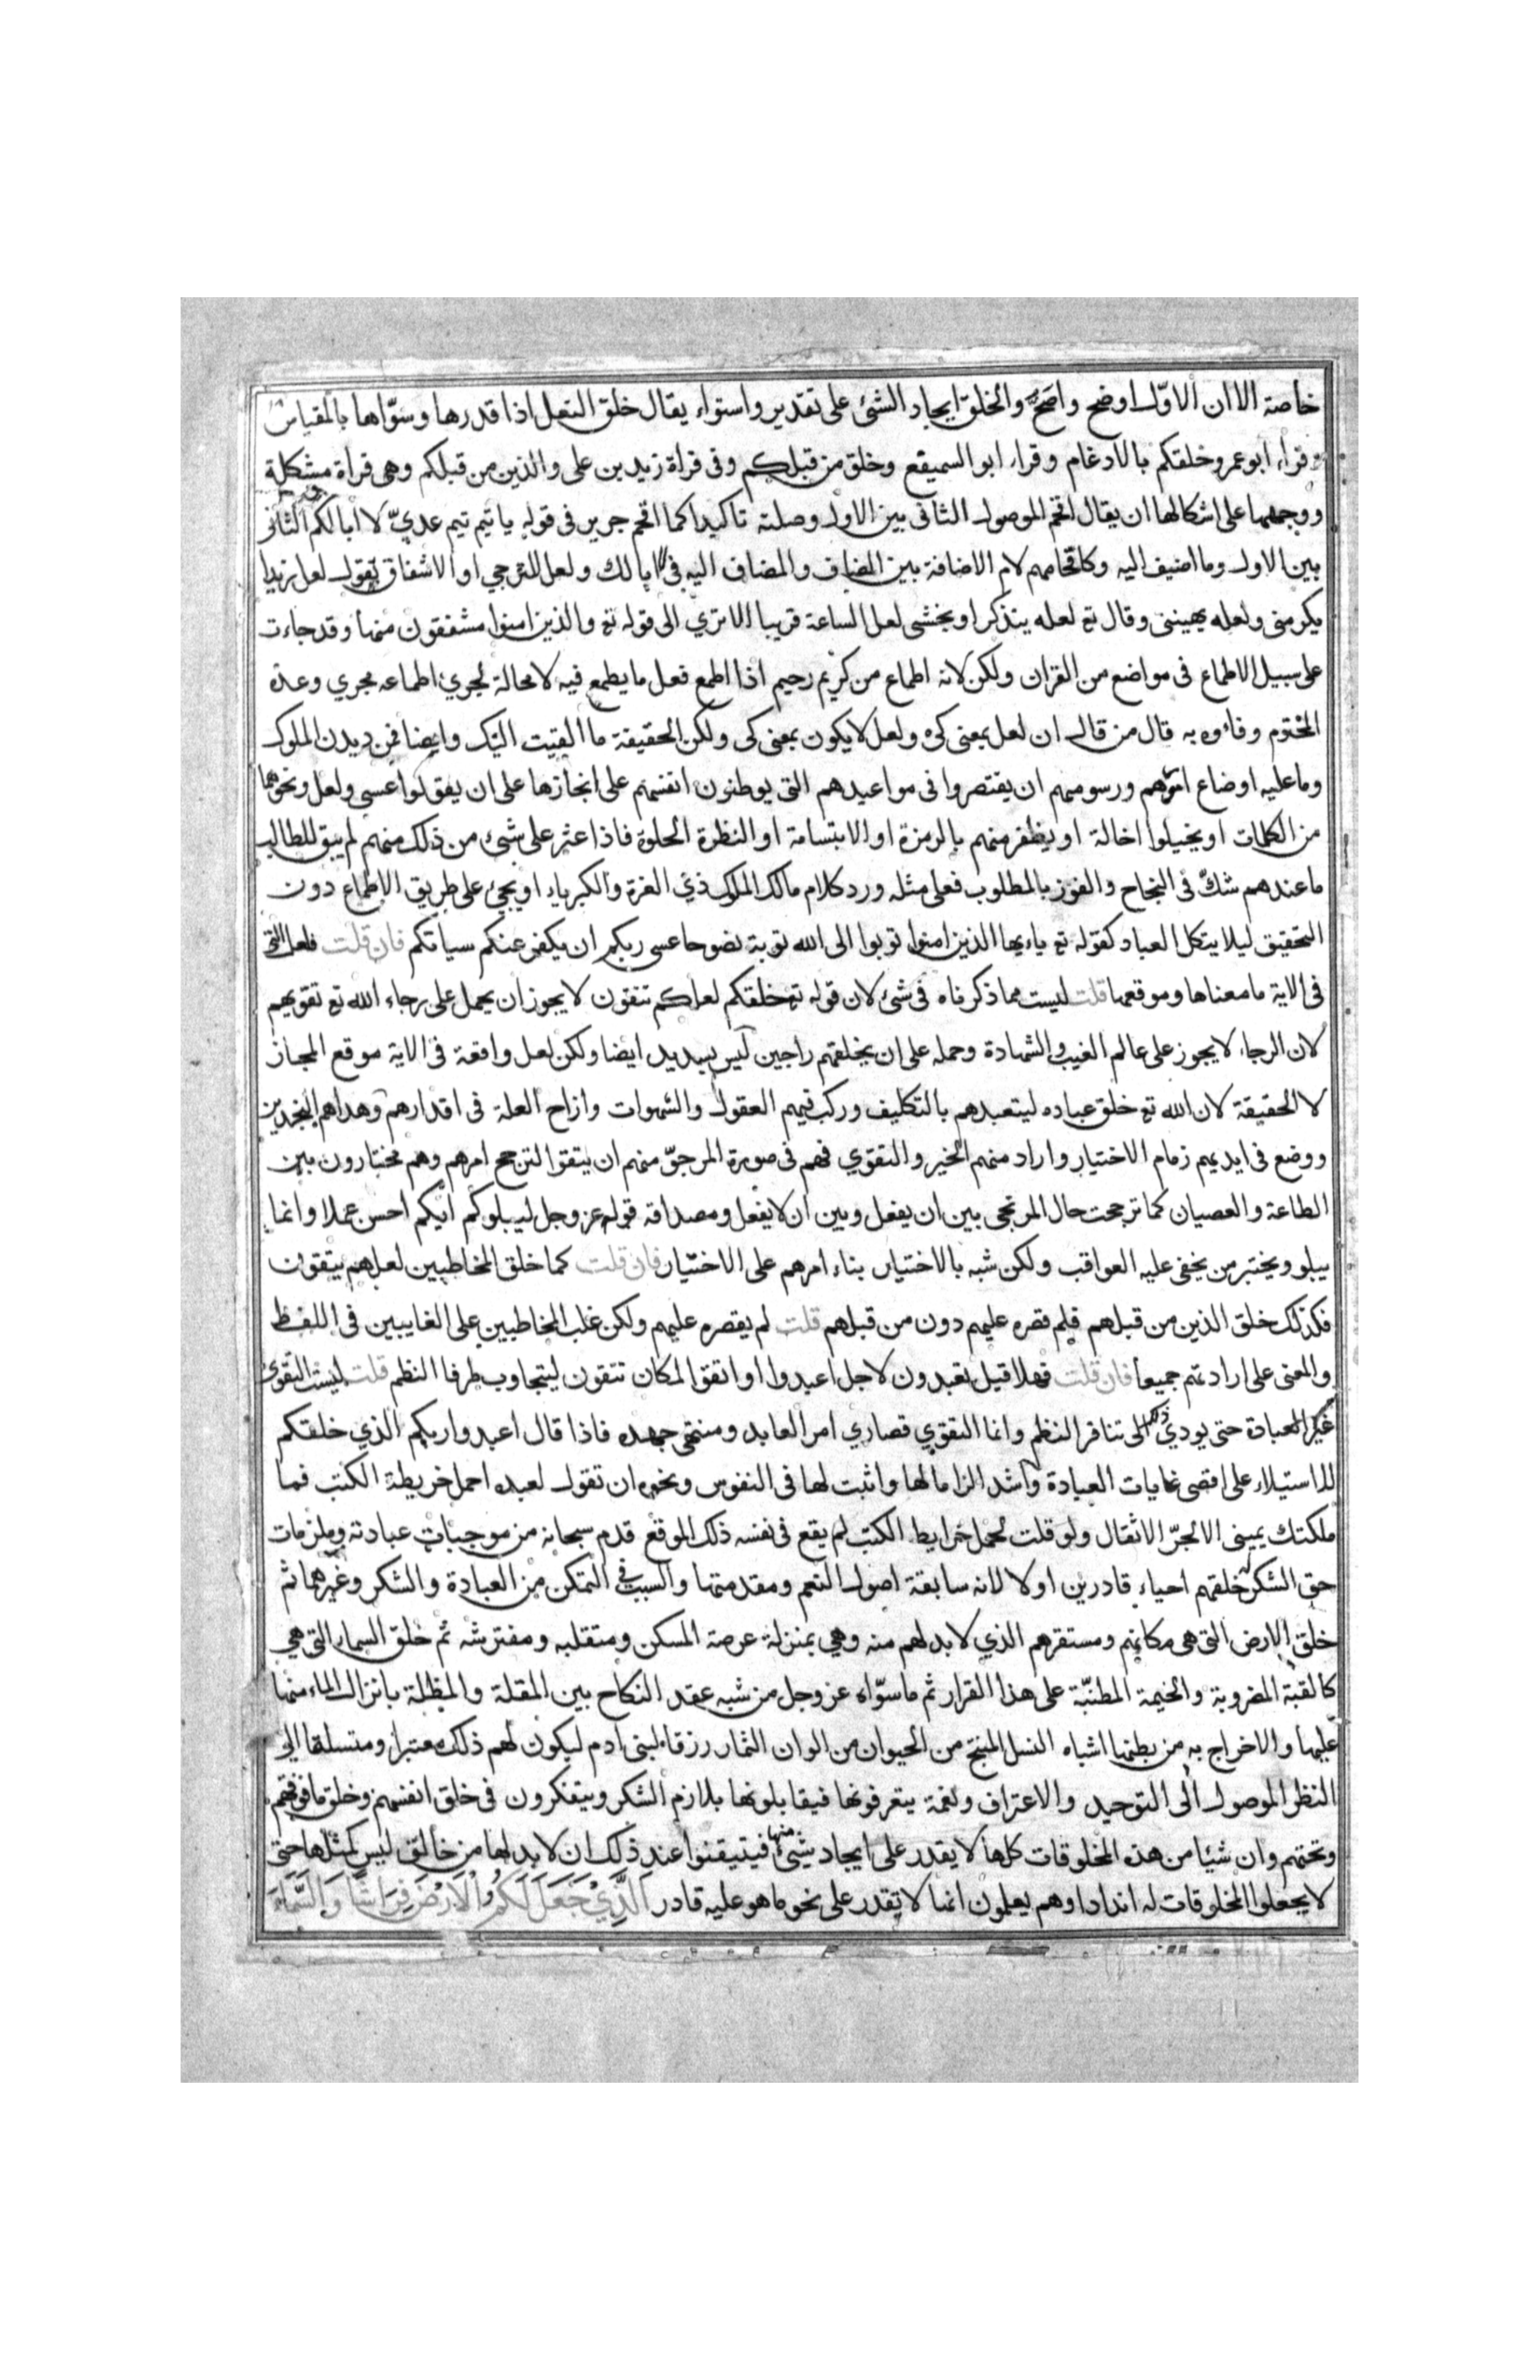 خاصة الا ان الاوّل اوضح واصَح والخلق ايجاد الشئ على تقدير واستواء يقال خلق النعل اذا قدرها وسوّاها بالمقياس
وقراء ابو عمرو خلقكم بالادغام وقراء ابو السميقع وخلق من قبلكم وفى قراة زيد بن على والذين من قبلكم وهى قراة مشكلة
ووجهها على اشكالها ان يقال اقحم الموصول الثانى بين الاول وصلته تاكيدا كما اقحم جرير فى قوله يا تيم تيم عدىّ لا ابا لكم الثانى
بين الاول وما اضيف اليه وكاقحامهم لام الاضافة بين المضاف والمضاف اليه فى لا ابا لك ولعل للترجي او الاشفاق تقول لعل زيدا
يكرمنى ولعله يهيننى وقال تع لعله يتذكر او يخشى لعل الساعة قريب الا تري الى قوله تع والذين امنوا مشفقون منها وقد جاءت
على سبيل الاطماع فى مواضع من القران ولكن لانه اطماع من كريم رحيم اذا اطمع فعل ما يطمع فيه لا محالة لجرى اطماعه مجري وعدة
المختوم وفاءوه به قال من قال ان لعل بمعنى كى ولعل لا يكون بمعنى كى ولكن الحقيقة ما القيت اليك وايضا فمن ديدن الملوك
وما عليه اوضاع امرهم ورسومهم ان يقتصروا فى مواعيدهم التى يوطنون انفسهم على انجازها على ان يقولوا عسى ولعل ونحوهما
من الكلمات او يخيلوا اخالة او يظفر منهم بالرمزة او الابتسامة او النظرة الحلوة فاذا عثر على شئ من ذلك منهم لم يبق للطالب
ما عندهم شكّ فى النجاح والفوز بالمطلوب فعلى مثله ورد كلام مالك الملوك ذي العزة والكبرياء او يجئ على طريق الاطماع دون
التحقيق ليلا يتكل العباد كقوله تع ياءيها الذين امنوا توبوا الى الله توبة نصوحا عسى ربكم ان يكفر عنكم سياتكم فان قلت فلعل التى
فى الاية ما معناها وموقعها قلت ليست مما ذكرناه فى شئ لان قوله تع خلقكم لعلكم تتقون لا يجوز ان يحمل على رجاء الله تع تقويهم
لان الرجاء لا يجوز على عالم الغيب والشهادة وحمله على ان يخلقهم راجين ليس بسديد ايضا ولكن لعل واقعة فى الاية موقع المجاز
لا الحقيقة لان الله تع خلق عباده ليتعبدهم بالتكليف وركب فيهم العقول والشهوات وازاح العلة فى اقدارهم وهداهم النجدين
ووضع فى ايديهم زمام الاختيار واراد منهم الخير والتقوي فهم فى صورة المرجوّ منهم ان يتقوا لترجح امرهم وهم مختارون بين
الطاعة والعصيان كما ترجحت حال المرتجى بين ان يفعل وبين ان لا يفعل ومصداقه قوله عز وجل ليبلوكم ايّكم احسن عملا وانما
يبلو ويختبر من يخفى عليه العواقب ولكن شبه بالاختيار بناء امرهم على الاختيار فان قلت كما خلق المخاطبين لعلهم يتقون
فكذلك خلق الذين من قبلهم فلم قصره عليهم دون من قبلهم قلت لم يقصره عليهم ولكن غلب المخاطبين على الغايبين فى اللفظ
والمعنى على ارادتهم جميعا فان قلت فهلا قيل تعبدون لاجل اعبدوا او اتقوا لمكان تتقون ليتجاوب طرفا النظم قلت ليست التقوى
غير العبادة حتى يودي ذلك الى تنافر النظم وانما التقوي قصاري امر العابد ومنتهى جهده فاذا قال اعبدوا ربكم الذي خلقكم
للاستيلاء على اقصى غايات العبادة واشد الزاما لها واثبت لها فى النفوس ونحوه ان تقول لعبده احمل خريطة الكتب فما
ملكتك يمينى الا لجرّ الاثقال ولو قلت لحمل خرايط الكتب لم يقع فى نفسه ذلك الموقع قدم سبحانه من موجبات عبادته وملزمات
حق الشكر له خلقهم احياء قادرين اولا لانه سابقة اصول النعم ومقدمتها والسبب فى التمكن من العبادة والشكر وغيرهما ثم
خلق الارض التى هى مكانهم ومستقرهم الذي لا بد لهم منه وهي بمنزلة عرصة المسكن ومتقلبه ومفترشه ثم خلق السماء التى هى
كالقبة المضروبة والخيمة المطنبّة على هذا القرار ثم ما سوّاه عز وجل من شبه عقد النكاح بين المقلة والمظلة بانزال الماء منها
عليها والاخراج به من بطنها اشباه النسل المنتج من الحيوان من الوان الثمار رزقا لبنى ادم ليكون لهم ذلك معتبرا ومتسلقا الى
النظر الموصول الى التوحيد والاعتراف ونعمة يتعرفونها فيقابلونها بلازم الشكر ويتفكرون فى خلق انفسهم وخلق ما فوقهم
وتحتهم وان شيئا من هذه المخلوقات كلها لا يقدر على ايجاد شئ منها فيتيقنوا عند ذلك ان لا بد لها من خالق ليس كمثلها حتى
لا يجعلوا المخلوقات له اندادا وهم يعلمون انها لا تقدر على نحو ما هو عليه قادر اَلَّذِيْ جَعَلَ لَكُمُ الْاَرْضَ فِرَاشًا وَالسَّمَاءَ